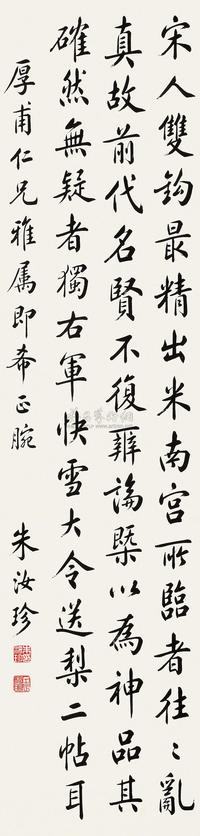 宋人雙鈎最精出米南宮所臨者往〻亂
真故前代名賢不復辨論槩以為神品其
確然無疑者獨右軍快雪大令送梨二帖耳
厚甫仁兄雅属即希正腕
朱汝珍